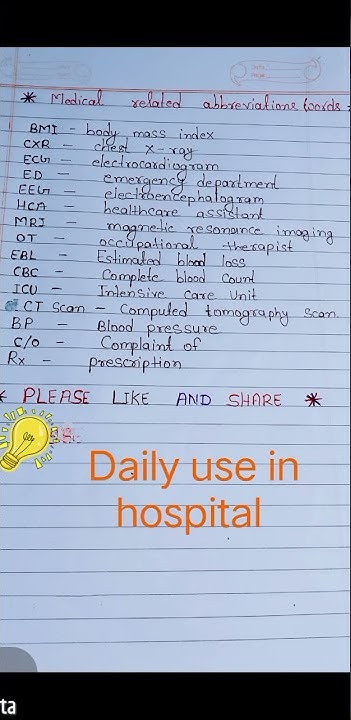 * Medical related abbreviations (words :
BMI - body mass index
CXR - chest x-ray
ECG - electrocardiogram
ED - emergency department
EEG - electroencephalogram
HCA - healthcare assistant
MRI - magnetic resonance imaging
OT - occupational therapist
EBL - Estimated blood loss
CBC - Complete blood Count
ICU - Intensive care Unit
CT Scan - Computed tomography scan.
BP - Blood pressure
C/O - Complaint of
Rx - prescription
* PLEASE LIKE AND SHARE *
Daily use in
hospital
ta